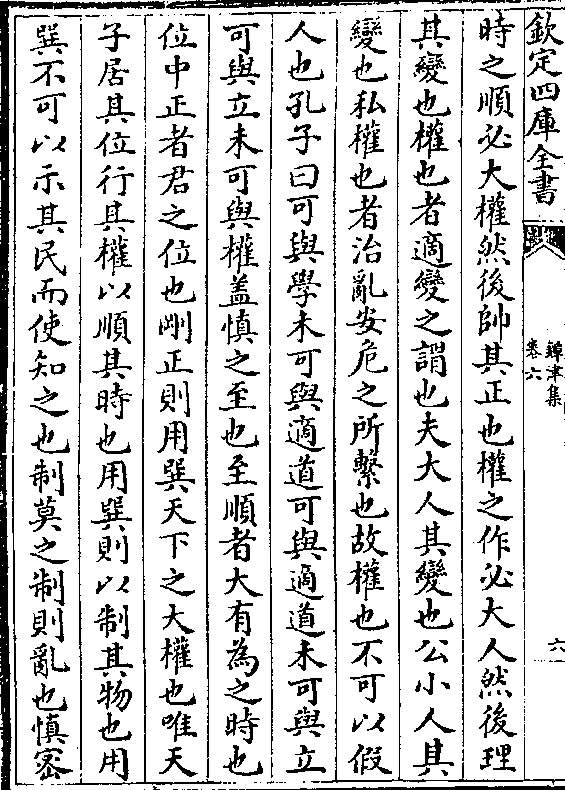 欽定四庫全書
鐔津集
卷六
六
時之順必大權然後帥其正也權之作必大人然後理
其變也權也者適變之謂也夫大人其變也公小人其
變也私權也者治亂安危之所繫也故權也不可以假
人也孔子曰可與學未可與適道可與適道未可與立
可與立未可與權蓋慎之至也至順者大有為之時也
位中正者君之位也剛正則用巽天下之大權也唯天
子居其位行其權以順其時也用巽則以制其物也用
巽不可以示其民而使知之也制莫之制則亂也慎密